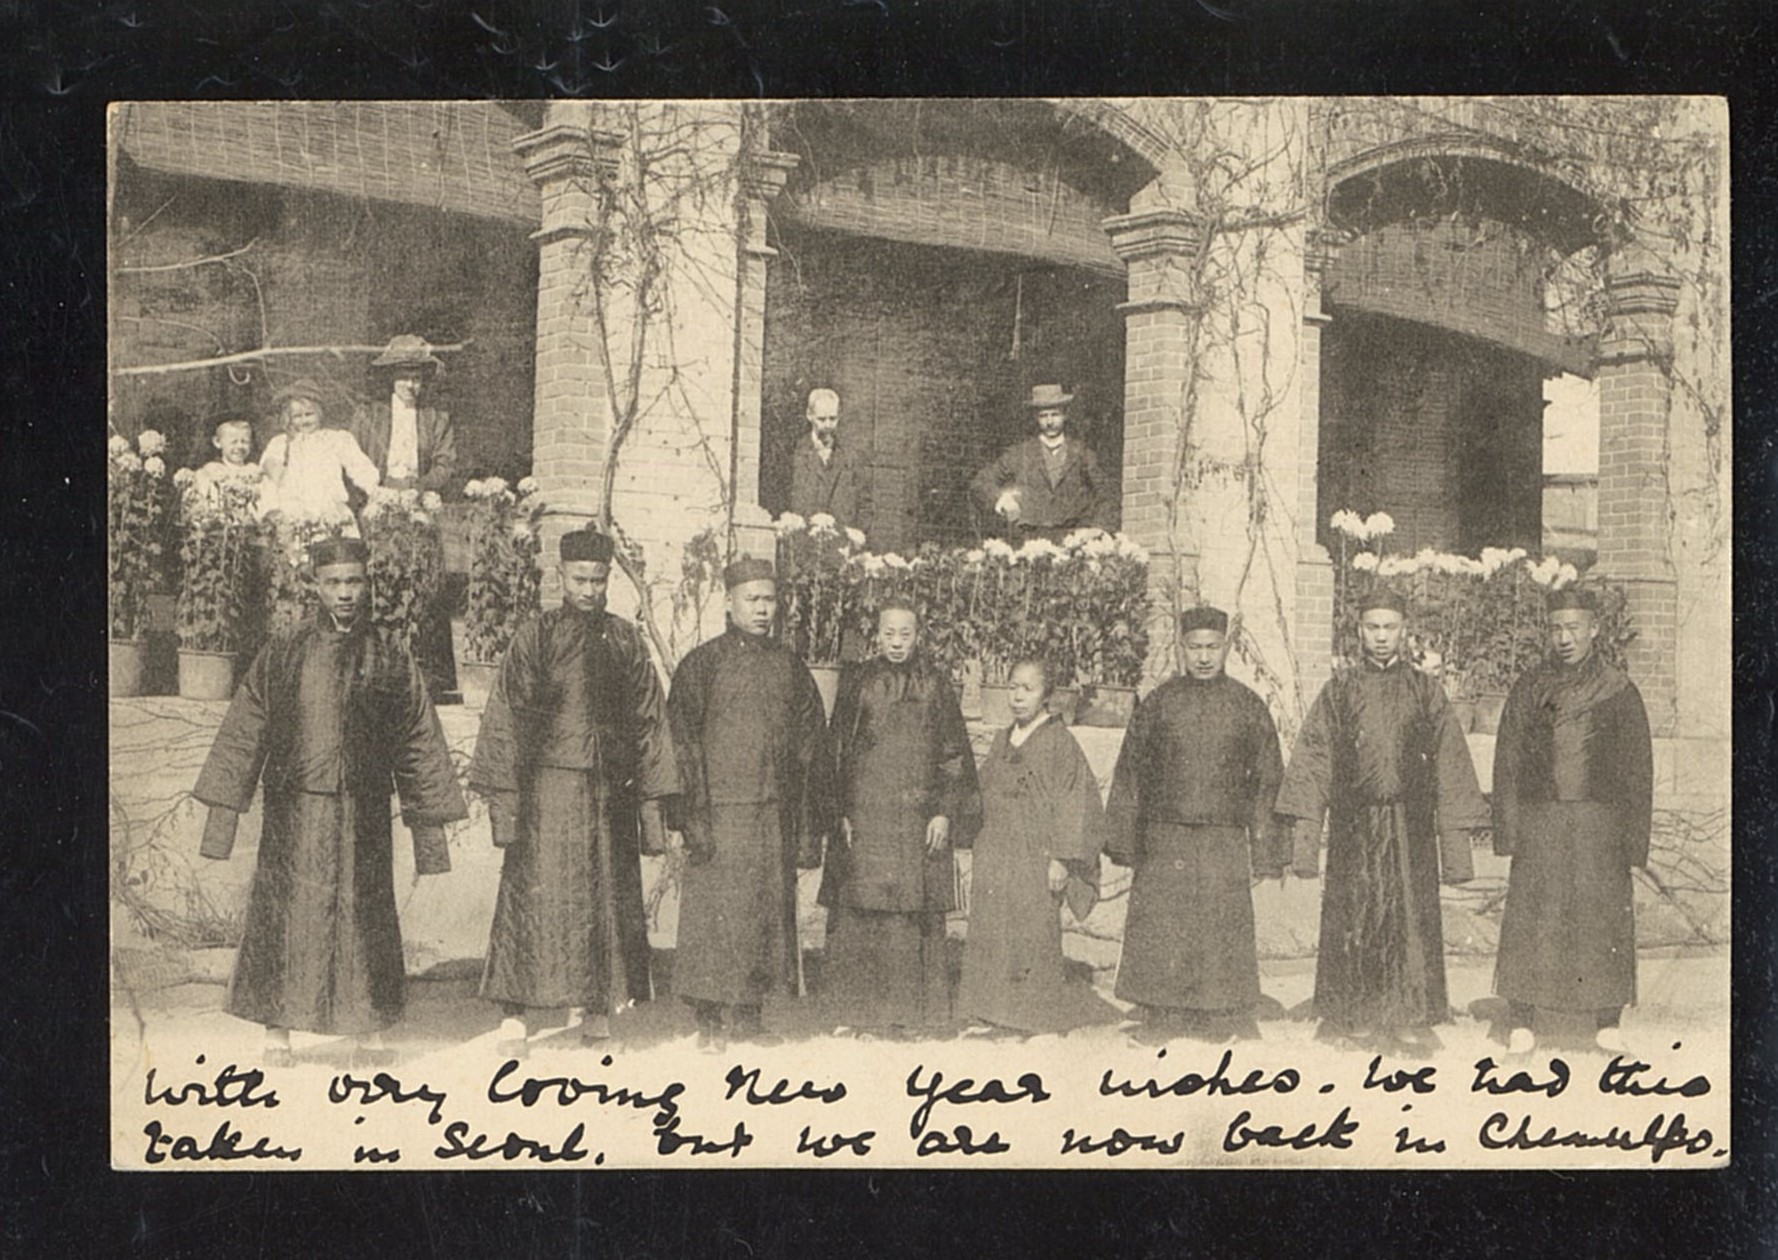 With very loving New Year wishes. We had this
taken in Seoul, but we are now back in Chemulpo.